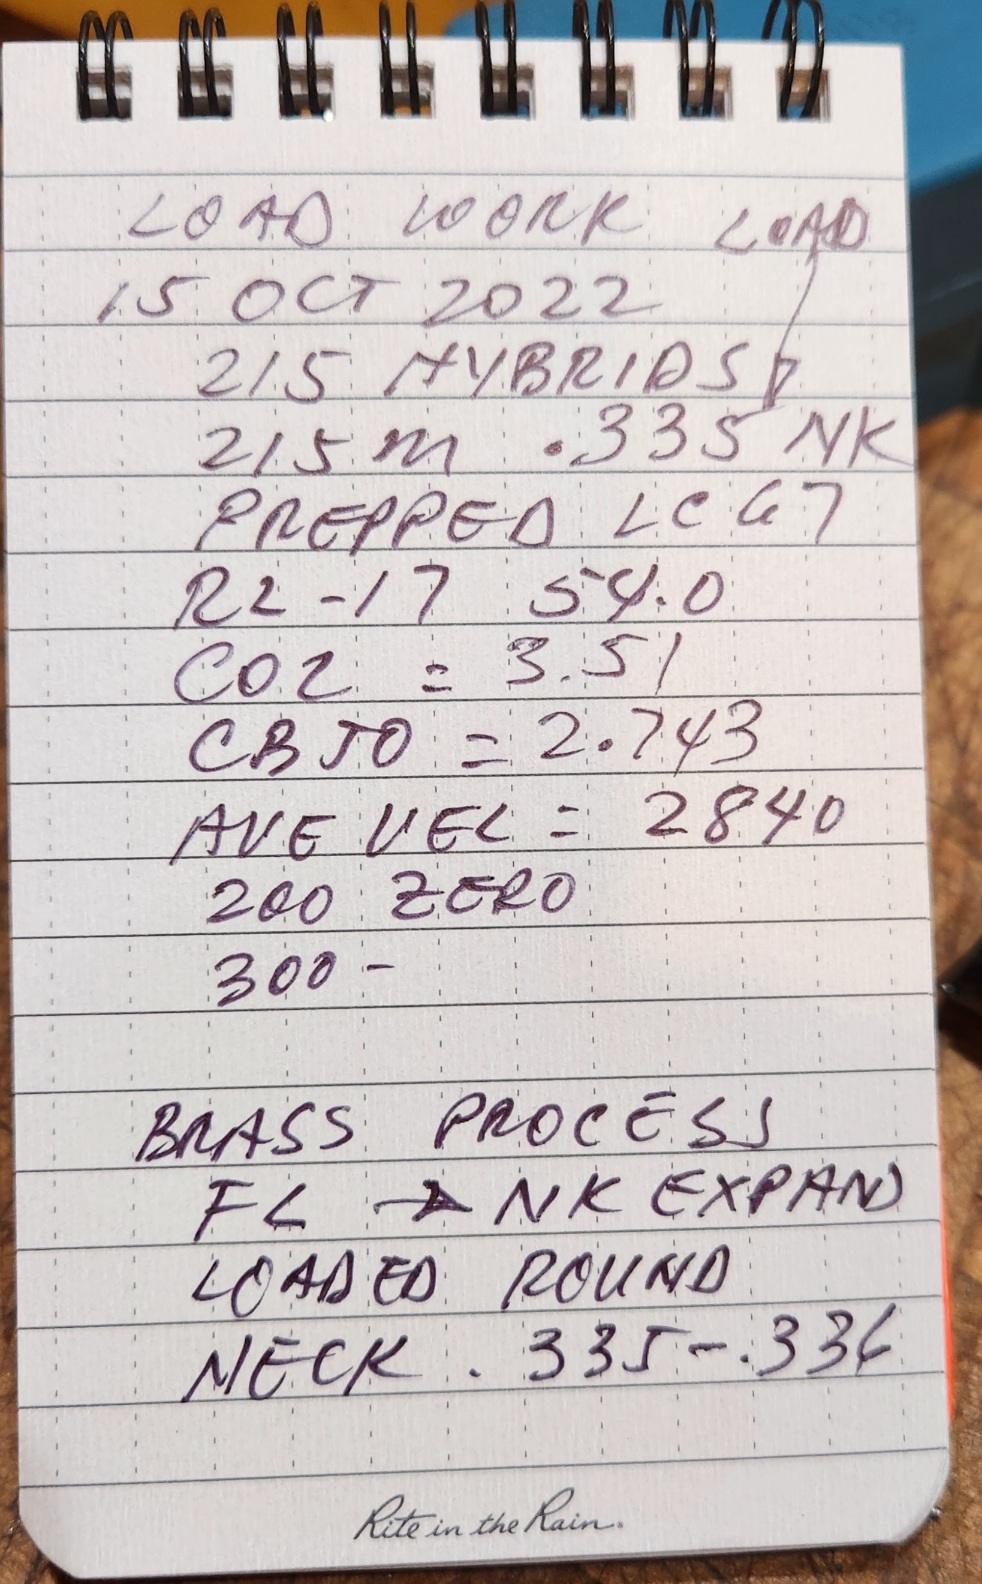 LOAD WORK LOAD
15 OCT 2022
215 HYBRIDS
215 M .335 NK
PREPPED LC 67
RL-17 54.0
COL = 3.51
CBTO = 2.743
AVE VEL = 2840
200 ZERO
300 -
BRASS PROCESS
FL → NK EXPAND
LOADED ROUND
NECK .335-.336
Rite in the Rain.